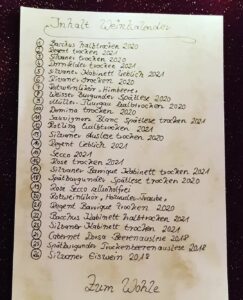 Inhalt Weinkalender
1 Bacchus halbtrocken 2020
2 Regent trocken 2021
3 Silvaner trocken 2020
4 Dornfelder trocken 2021
5 Silvaner Kabinett lieblich 2021
6 Silvaner trocken 2020
7 Rotweinlikör Himbeere
8 Weisser Burgunder Spätlese 2020
9 Müller-Thurgau halbtrocken 2020
10 Domina trocken 2020
11 Sauvignon Blanc Spätlese trocken 2021
12 Rotling halbtrocken 2021
13 Silvaner Auslese trocken 2020
14 Regent lieblich 2021
15 Secco 2021
16 Rose trocken 2021
17 Silvaner Barrique Kabinett trocken 2021
18 Spätburgunder Spätlese trocken 2020
19 Rose Secco alkoholfrei
20 Rotweinlikör, Holunder-Traube
21 Regent Barrique trocken 2020
22 Bacchus Kabinett halbtrocken 2021
23 Silvaner Kabinett trocken 2021
24 Cabernet Dorsa Beerenauslese 2018
25 Spätburgunder Trockenbeerenauslese 2018
26 Silvaner Eiswein 2018
Zum Wohle